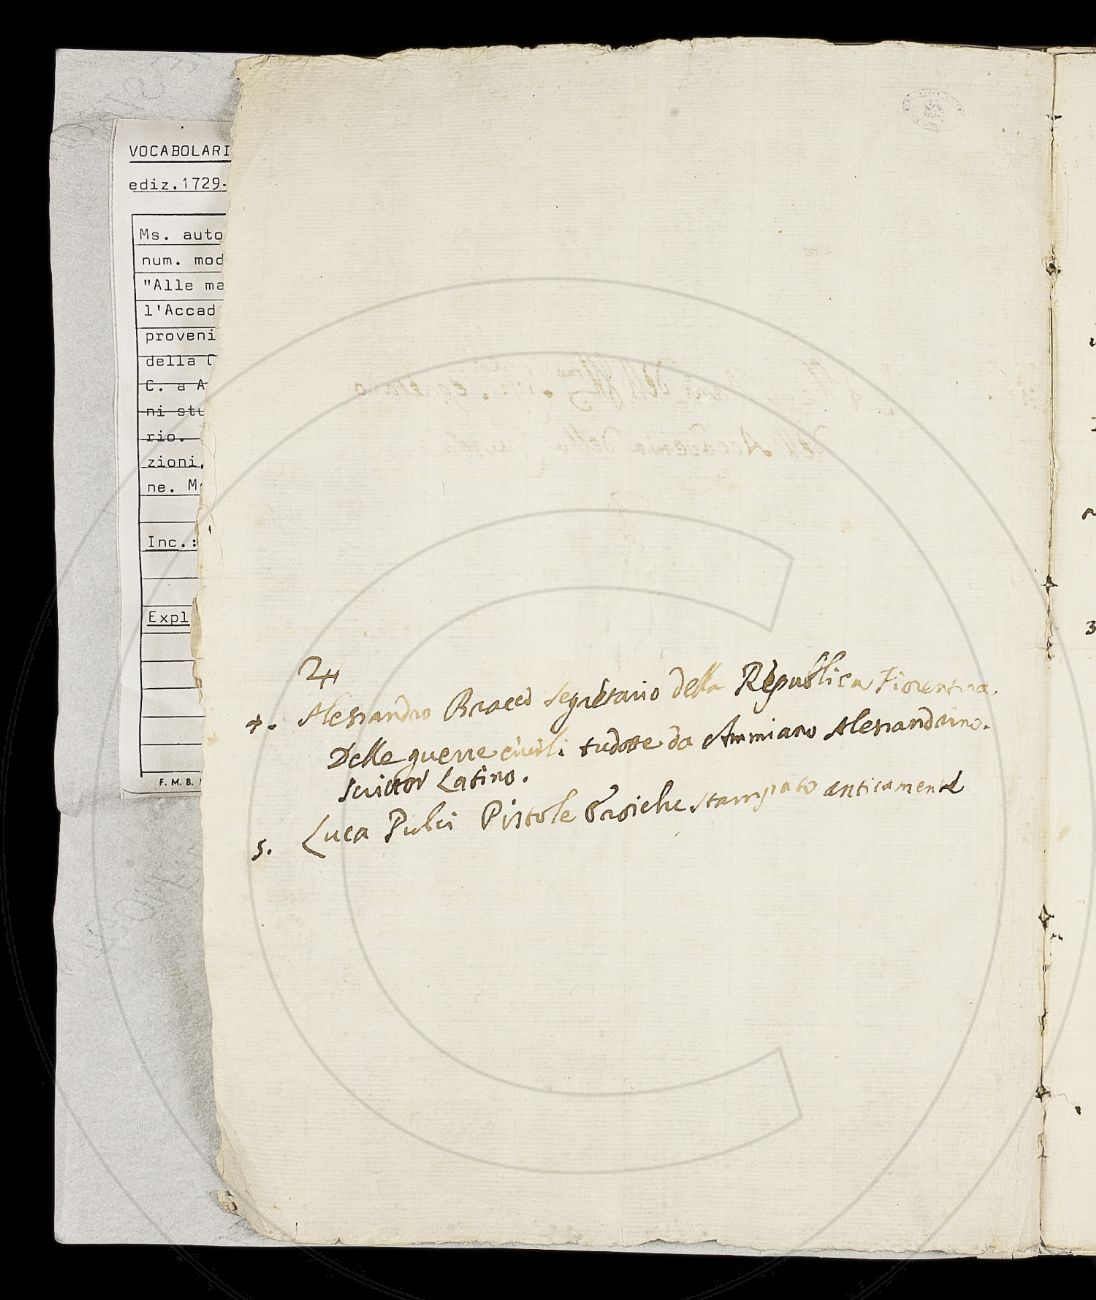 VOCABOLARI
ediz.1729-
Ms. auto
num. mod
"Alle ma
l'Accad
proveni
della C
C. a A
ni stu
rio.
zioni,
ne. M
Inc.:
Expl
F. M. B.
24
4. Alessandro Bracci Segretario della Republica Fiorentina.
Delle guerre civili tradotte da Ammiano Alessandrino.
Scrittor Latino.
5. Luca Pulci Pistole Eroiche stampato anticamente